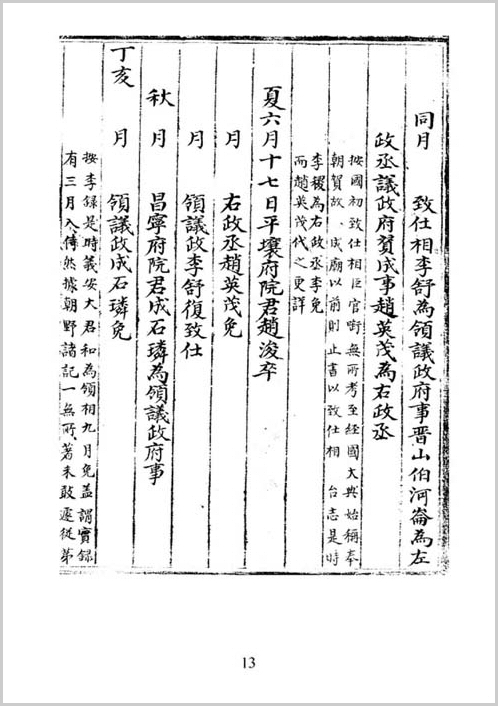 同月　致仕相李舒為領議政府事晋山伯河崙為左
政丞議政府贊成事趙英茂為右政丞
按國初致仕相臣官銜無所考至經國大典始稱奉
朝賀故、成廟以前則止書以致仕相　台志是時
李稷為右政丞李免
而趙英茂代之更詳
夏六月十七日平壤府院君趙浚卒
月　右政丞趙英茂免
月　領議政李舒復致仕
秋　月　昌寧府院君成石璘為領議政府事
丁亥　月　領議政成石璘免
按李錄是時義安大君　和為領相九月免盖謂實錄
有三月入傳然據朝野諸記一無所著未敢遽從第
13